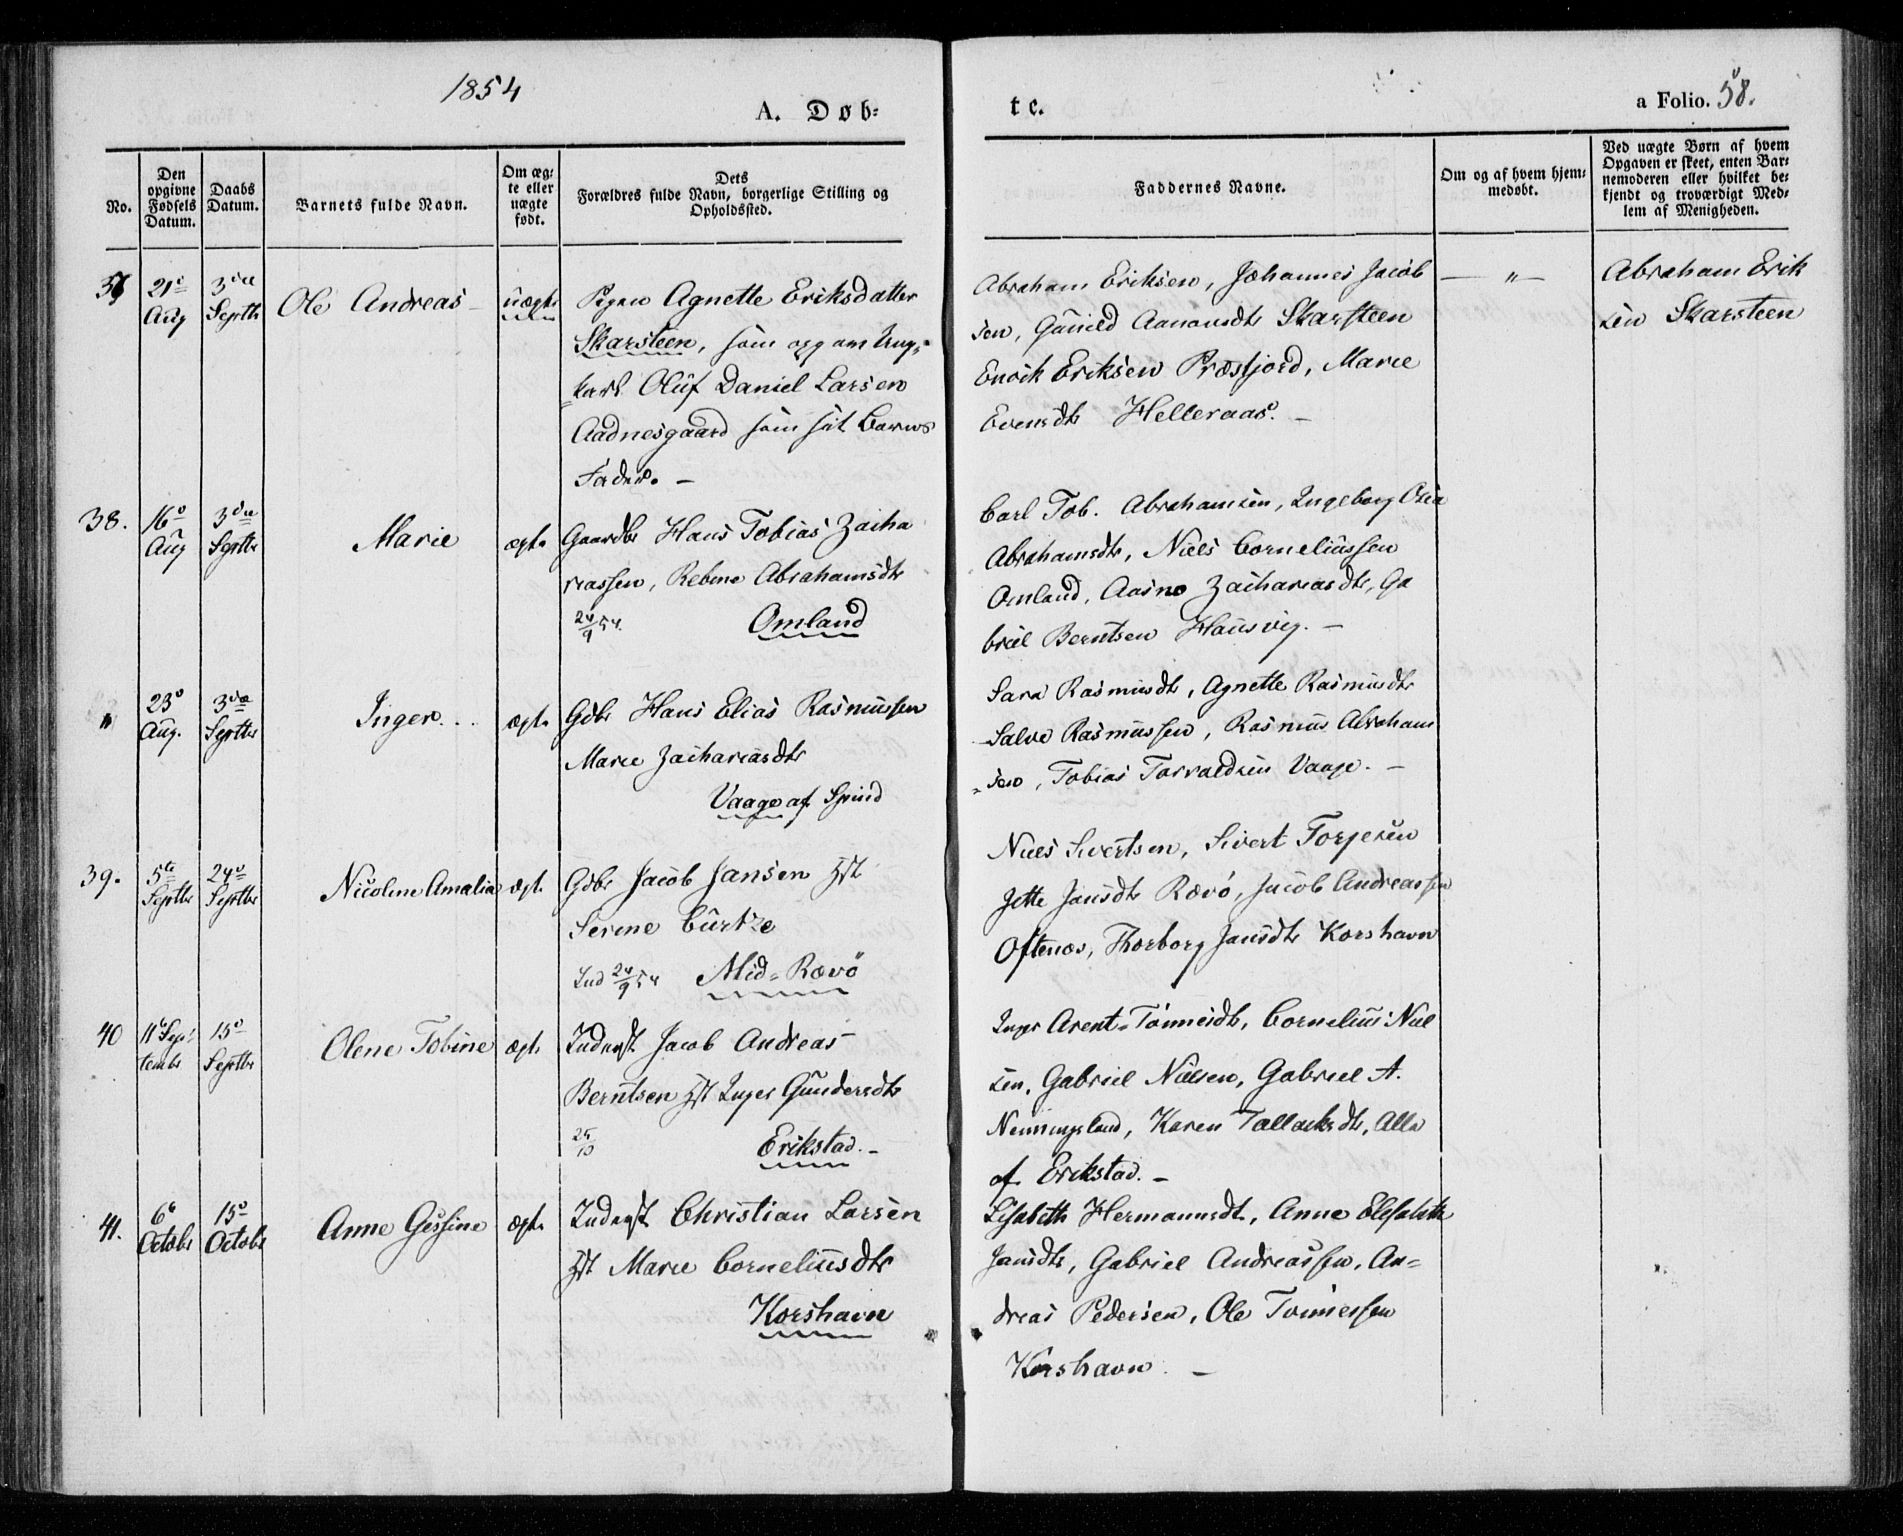 1854
A. Døb-
te.
a Folio. 58.
No.
Den opgivne Fødsels Datum.
Daabs Datum.
Barnets fulde Navn.
Om ægte eller uægte født.
Dets Forældres fulde Navn, borgerlige Stilling og Opholdssted.
Faddernes Navne.
Om og af hvem hjemmedøbt.
Ved uægte Børn af hvem Opgaven er skeet, enten Barnemoderen eller hvilket bekjendt og troværdigt Medlem af Menigheden.
37 21de Aug 3die Septbr Ole Andreas uægte
Pigen Agnette Eriksdatter
Skarsteen, som opg om Ung-
karl Oluf Daniel Larsen
Aadnesgaard som sit Barns
Fader. –
Abraham Eriksen, Johannes Jacob
sen, Gunild Aanensdtr Skarsteen
Enoik Eriksen Præstjord, Marie
Evensdtr Helleraas. –
— " —
Abraham Erik
sen Skarsteen
38. 16de Aug 3die Septbr Marie ægte
Gaardbr Hans Tobias Zacha
riassen, Rebine Abrahamsdtr
24/9 54. Omland
Carl Tob. Abrahamsen, Ingeborg Olea
Abrahamsdtr, Niels Corneliussen
Omland, Aasne Zachariasdtr, Ga
briel Berntsen Hausvig. –
" 23de Aug. 3die Septbr Inger. ægte
Gdbr Hans Elias Rasmussen
Marie Zachariasdtr
Vaage af Spind
Sara Rasmusdtr, Agnette Rasmusdtr
Salve Rasmussen, Rasmus Abraham
sen, Tobias Torvaldsen Vaage. –
39. 5te Septbr 24de Septbr Nicoline Amalia ægte
Gdbr Jacob Jansen Hst
Serine Curtze
Ind 24/9 54 Mid-Rævø
Niels Sivertsen, Sivert Torjesen
Jette Jansdtr Rævø, Jacob Andreassen
Oftenæs, Thorborg Jansdtr Korshavn
40 11te Septembr 15de Septbr Olene Tobine ægte
Inderst Jacob Andreas
Berntsen Hst Inger Gundersdtr
25/10 Erikstad. –
Inger Arent-Tønnesdtr, Cornelius Niel
sen, Gabriel Nielsen, Gabriel A.
Nenningsland, Karen Tallaksdtr, Alle
af Erikstad. –
41. 6te Octobr 15de Octobr Anne Gessine ægte
Inderst Christian Larsen
Hst Marie Corneliusdtr
Korshavn
Lisabeth Hermannsdtr, Anne Elisabeth
Jansdtr, Gabriel Andreassen, An-
dreas Pedersen, Ole Tønnessen
Korshavn. –